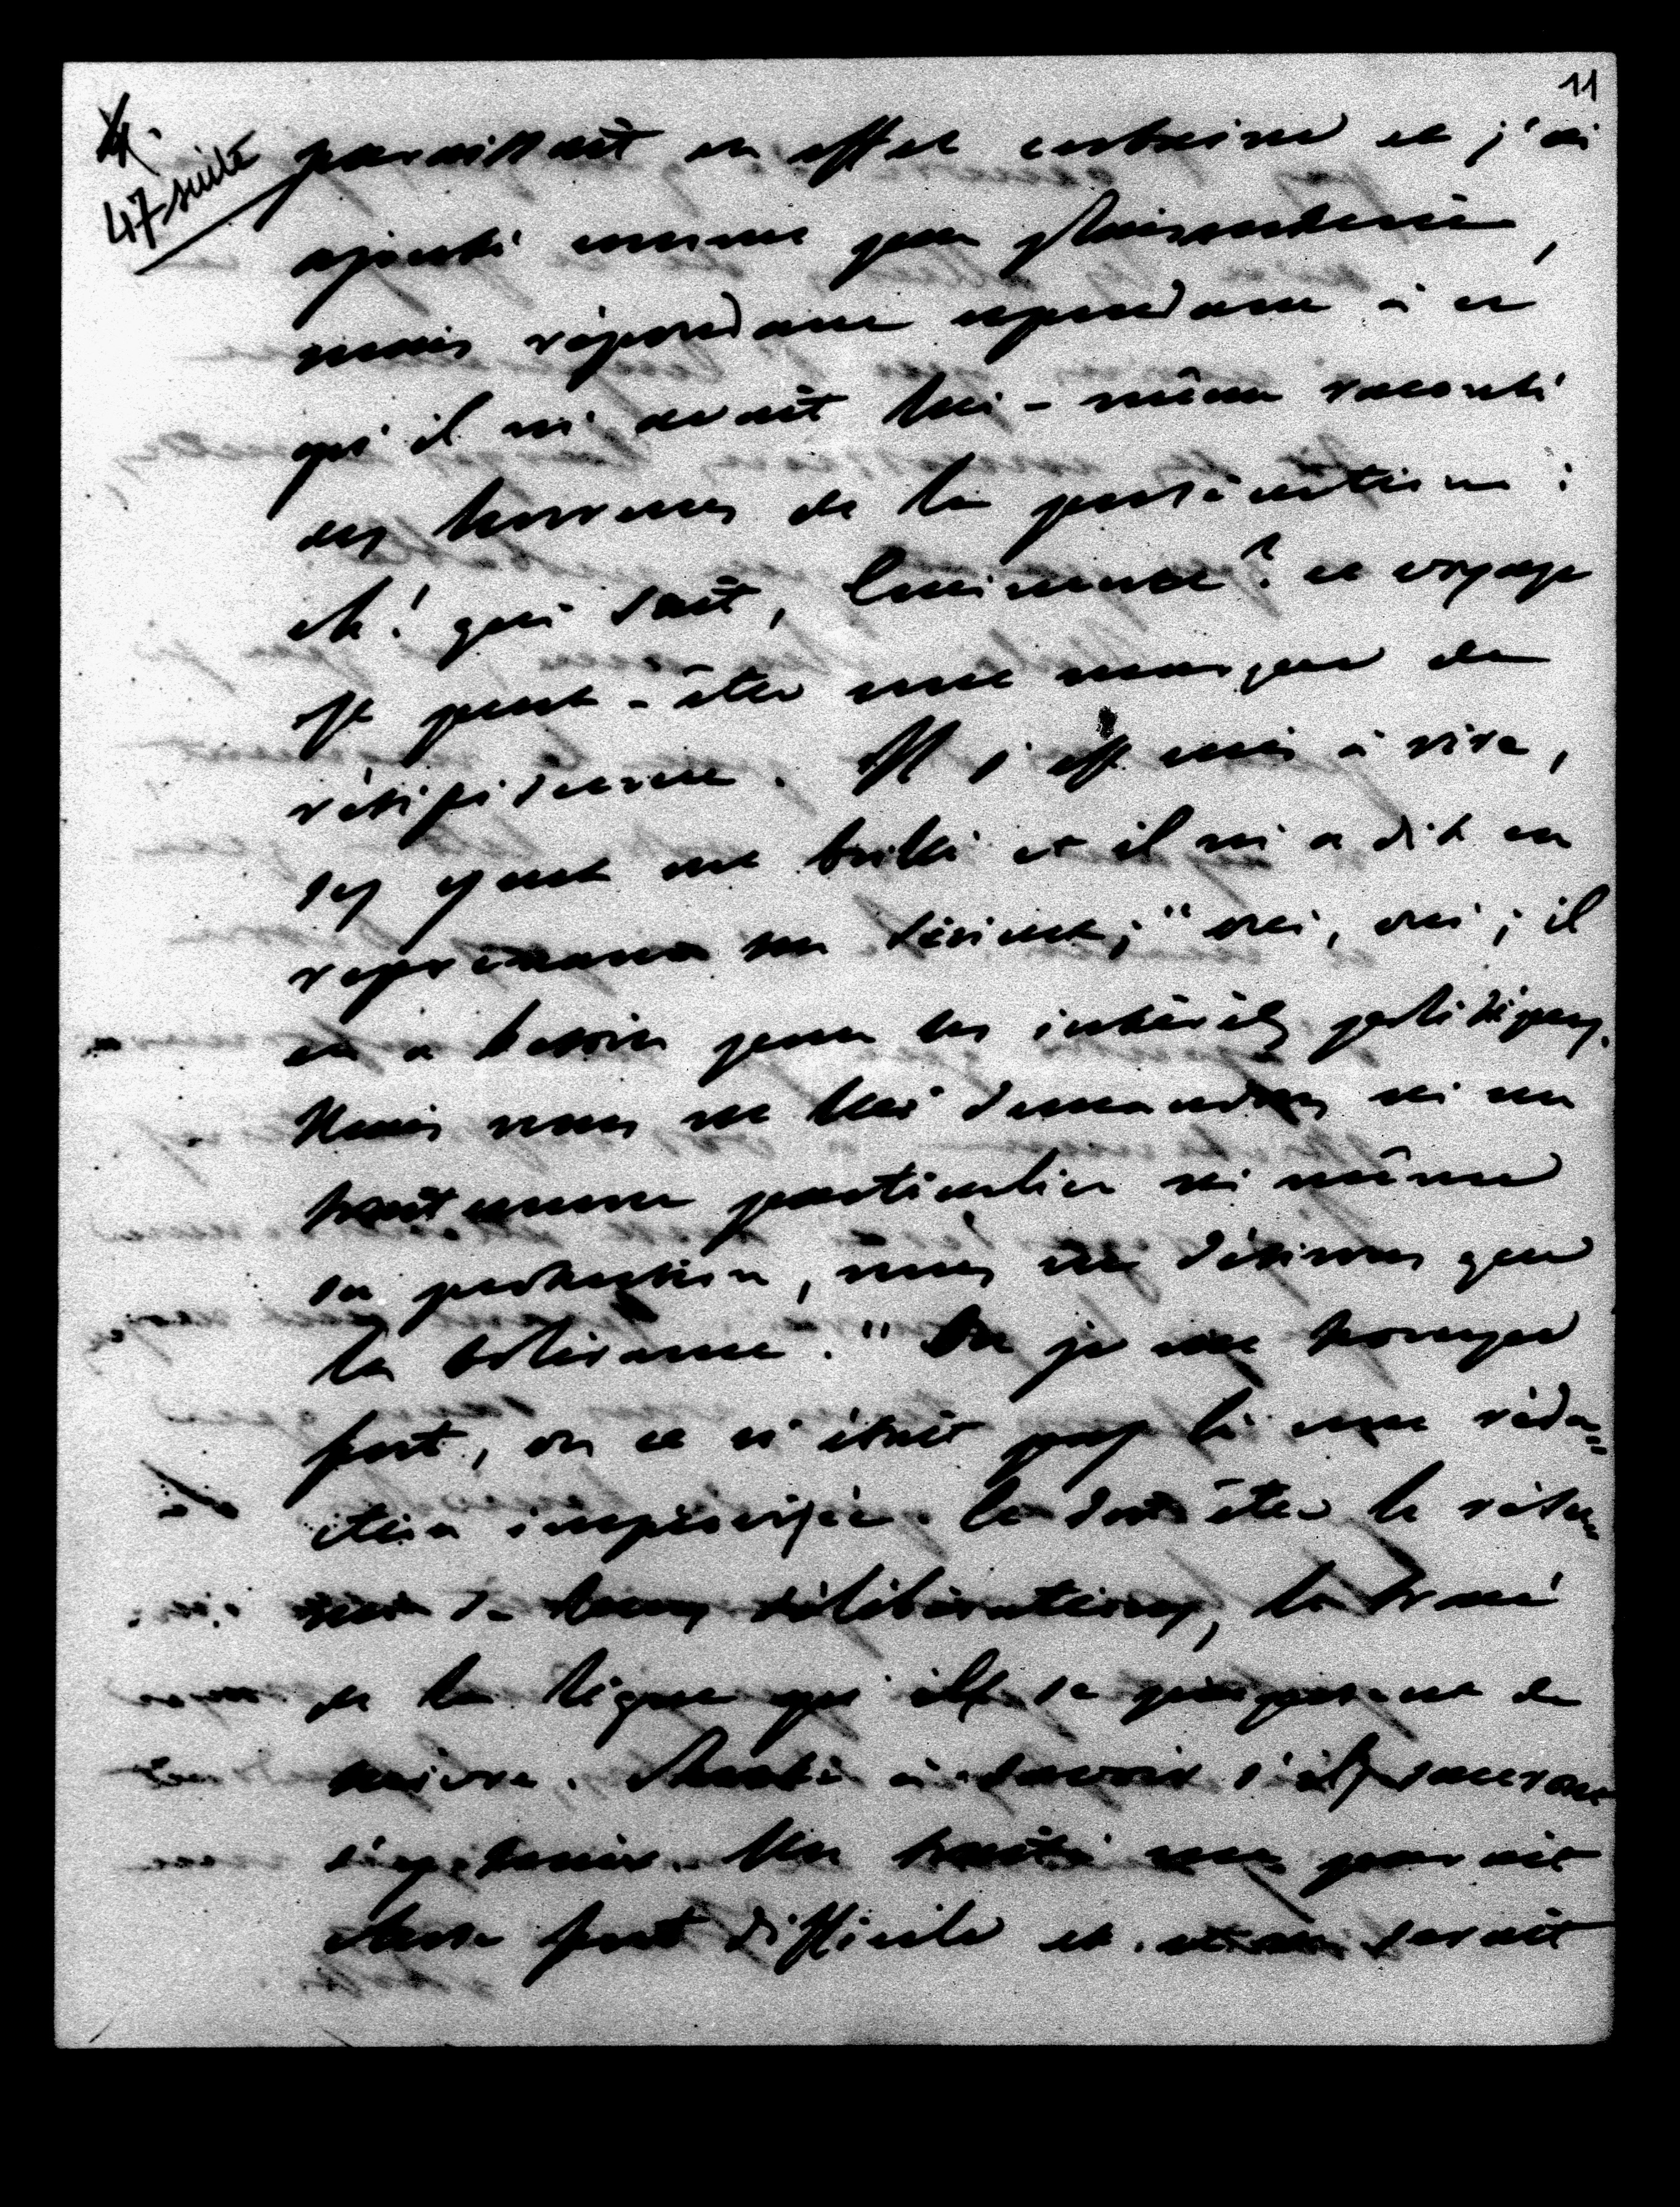 11
47 suite
paraissait en effet certaine et j'ai
ajouté comme par plaisanterie,
mais répondant cependant à ce
qu'il m'avait lui-même raconté
des horreurs de la persécution :
eh! qui sait, Eminence? ce voyage
est peut-être une marque de
résipiscence. Il s'est mis à rire,
ses yeux ont brillé et il m'a dit en
reprenant son sérieux; "oui, oui; il
en a besoin pour les intérêts politiques.
Mais nous ne lui demandons ni un
traitement particulier ni même
sa protection, nous ne désirons que
la tolérance." Ou je me trompe
fort, ou ce n'était pas là une réda=
ction improvisée. Ce doit être le résu=
mé de leurs délibérations, le tracé
de la ligne qu'ils se proposent de
suivre. Reste à savoir s'ils sauront
s'y tenir. Un traité me paraît
chose fort difficile et serait